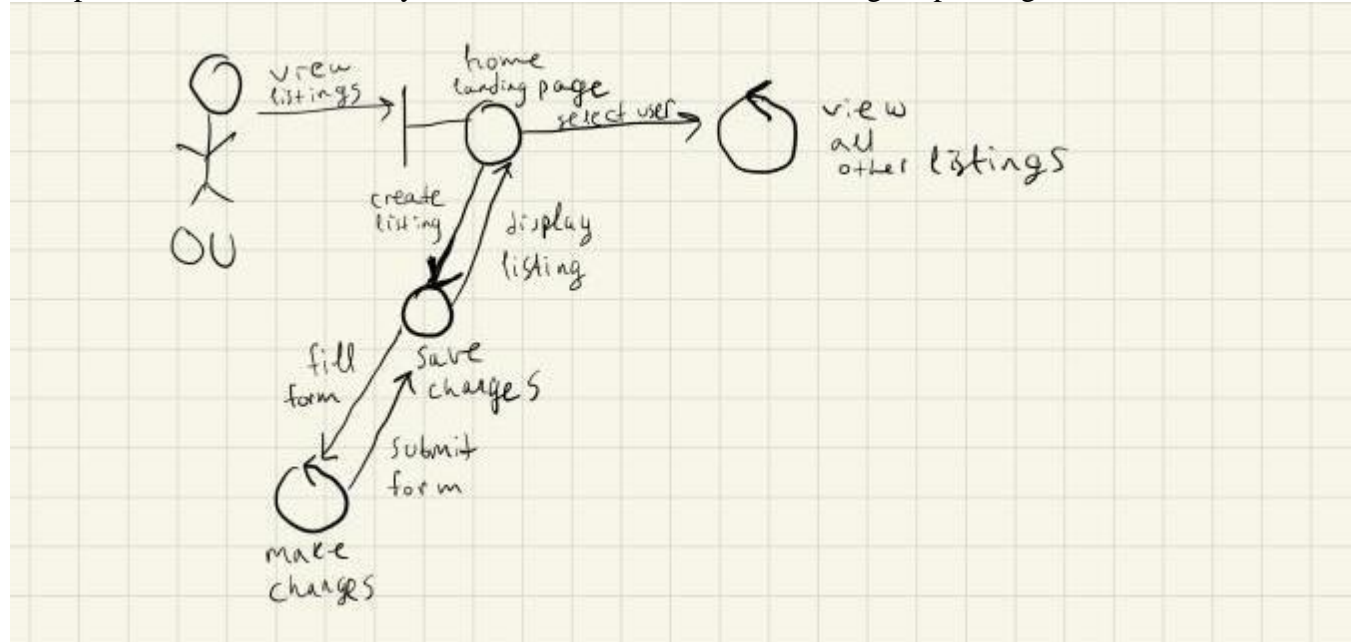 view
listings
home
landing page
select user
view
all
other listings
create
listing
display
listing
OU
fill
form
save
changes
submit
form
make
changes